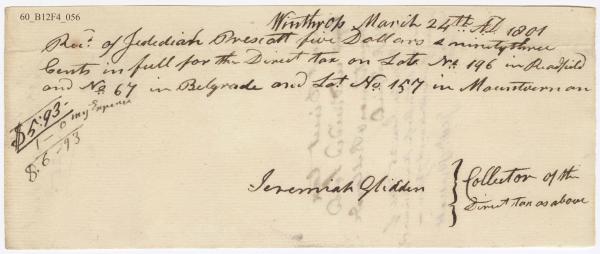 60_B12F4_056
Winthrop March 24th AD 1801
Recd. of Jedediah Prescott five Dollars & ninty three
Cents in full for the Direct tax on Lots No. 196 in Readfield
and No 67 in Belgrade and Lot No. 157 in Mountvernon
$5:93-
1-0 my Expence
$.6-93
Jeremiah Glidden } Collector of the
Direct tax as above